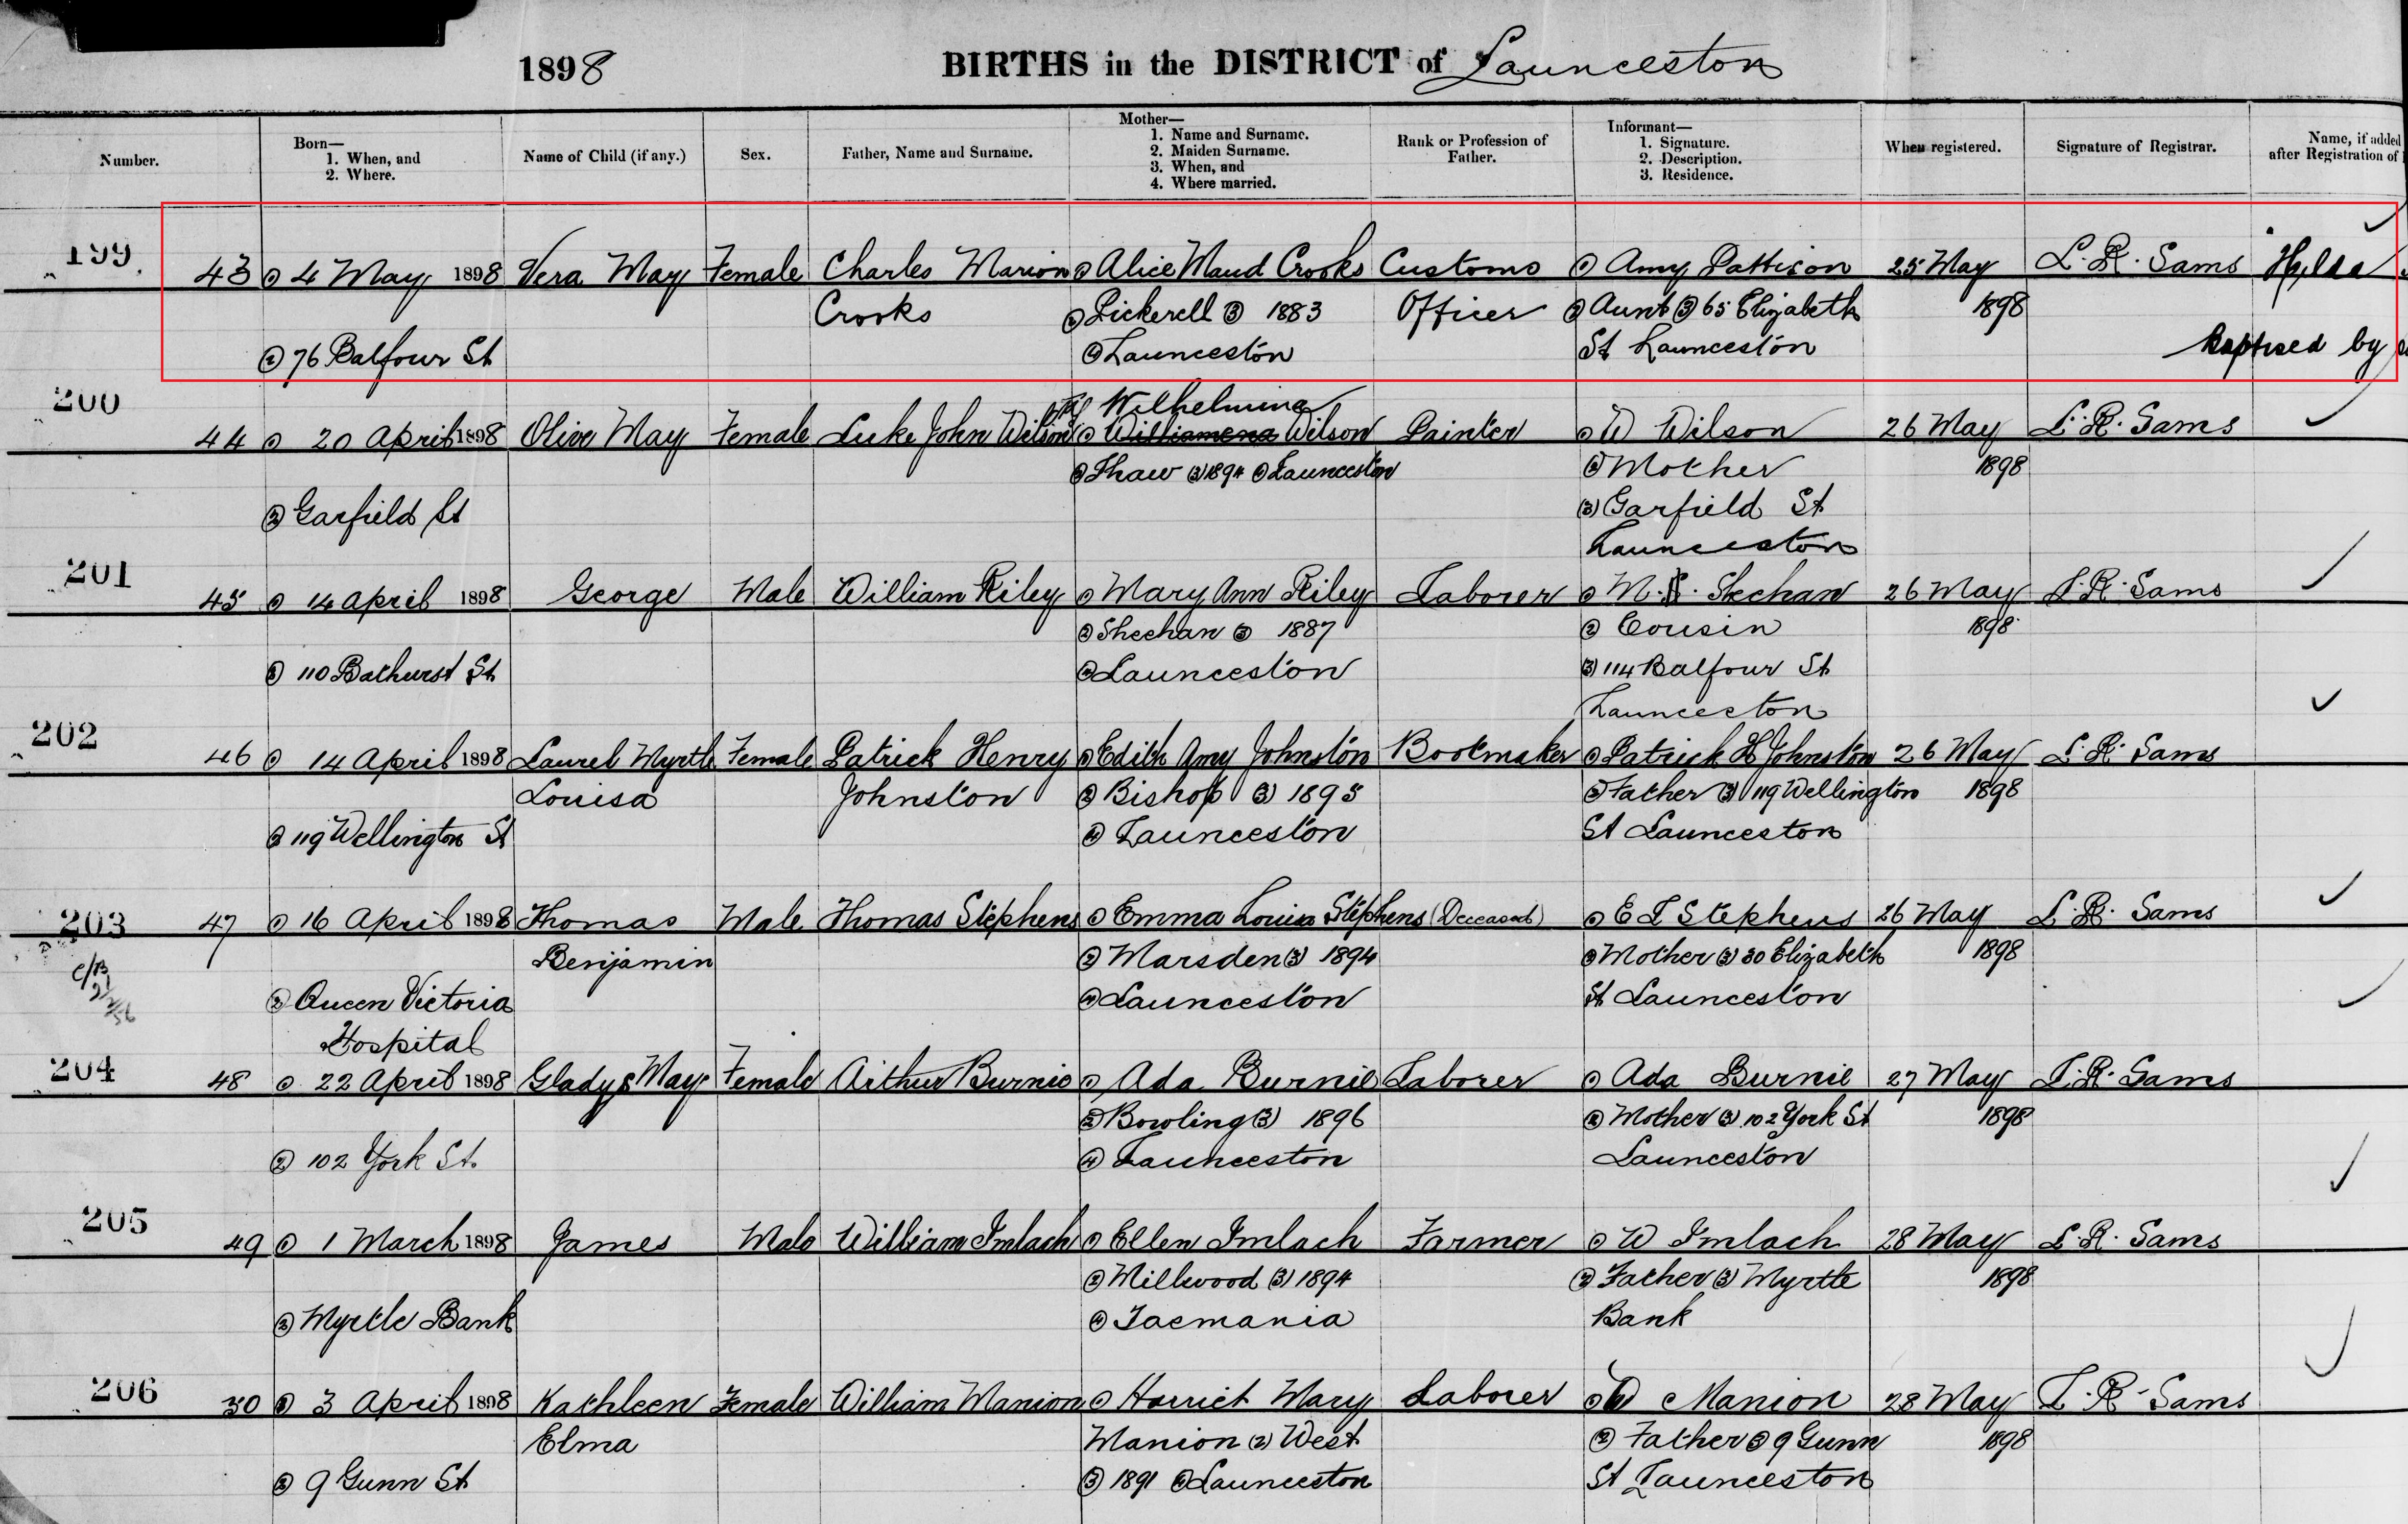 1898 BIRTHS in the DISTRICT of Launceston
Number.
Born—
1. When, and
2. Where.
Name of Child (if any.)
Sex.
Father, Name and Surname.
Mother—
1. Name and Surname.
2. Maiden Surname.
3. When, and
4. Where married.
Rank or Profession of
Father.
Informant—
1. Signature.
2. Description.
3. Residence.
When registered.
Signature of Registrar.
Name, if added
after Registration of
199
43 (1) 4 May 1898 Vera May Female Charles Marion (1) Alice Maud Crooks Customs (1) Amy Pattison 25 May L. R. Sams Hilda
Crooks (2) Pickerell (3) 1883 Officer (2) Aunt (3) 65 Elizabeth 1898
(2) 76 Balfour St (4) Launceston St Launceston Baptised by
200
Wilhelmina
44 (1) 20 April 1898 Olive May Female Luke John Wilson (1) Williamena Wilson Painter (1) W Wilson 26 May L. R. Sams
(2) Thaw (3) 1894 (4) Launceston (2) Mother 1898
(2) Garfield St (3) Garfield St
Launceston
201
45 (1) 14 April 1898 George Male William Riley (1) Mary Ann Riley Laborer (1) M. S. Shehan 26 May L. R. Sams
(2) Sheehan (3) 1887 (2) Cousin 1898
(2) 110 Bathurst St (4) Launceston (3) 114 Balfour St
Launceston
202
46 (1) 14 April 1898 Laurel Myrtle Female Patrick Henry (1) Edith Amy Johnston Bootmaker (1) Patrick H Johnston 26 May L. R. Sams
Louisa Johnston (2) Bishop (3) 1895 (2) Father (3) 119 Wellington 1898
(2) 119 Wellington St (4) Launceston St Launceston
203
47 (1) 16 April 1898 Thomas Male Thomas Stephens (1) Emma Louisa Stephens (Deceased) (1) E L Stephens 26 May L. R. Sams
Benjamin (2) Marsden (3) 1894 (2) Mother (3) 30 Elizabeth 1898
(2) Queen Victoria (4) Launceston St Launceston
Hospital
204
48 (1) 22 April 1898 Gladys May Female Arthur Burnie (1) Ada Burnie Laborer (1) Ada Burnie 27 May L. R. Sams
(2) Bowling (3) 1896 (2) Mother (3) 102 York St 1898
(2) 102 York St. (4) Launceston Launceston
205
49 (1) 1 March 1898 James Male William Imlach (1) Ellen Imlach Farmer (1) W Imlach 28 May L. R. Sams
(2) Millwood (3) 1894 (2) Father (3) Myrtle 1898
(2) Myrtle Bank (4) Tasmania Bank
206
50 (1) 3 April 1898 Kathleen Female William Manion (1) Harriet Mary Laborer (1) W Manion 28 May L. R. Sams
Elma Manion (2) West (2) Father (3) 9 Gunn 1898
(2) 9 Gunn St (3) 1891 (4) Launceston St Launceston